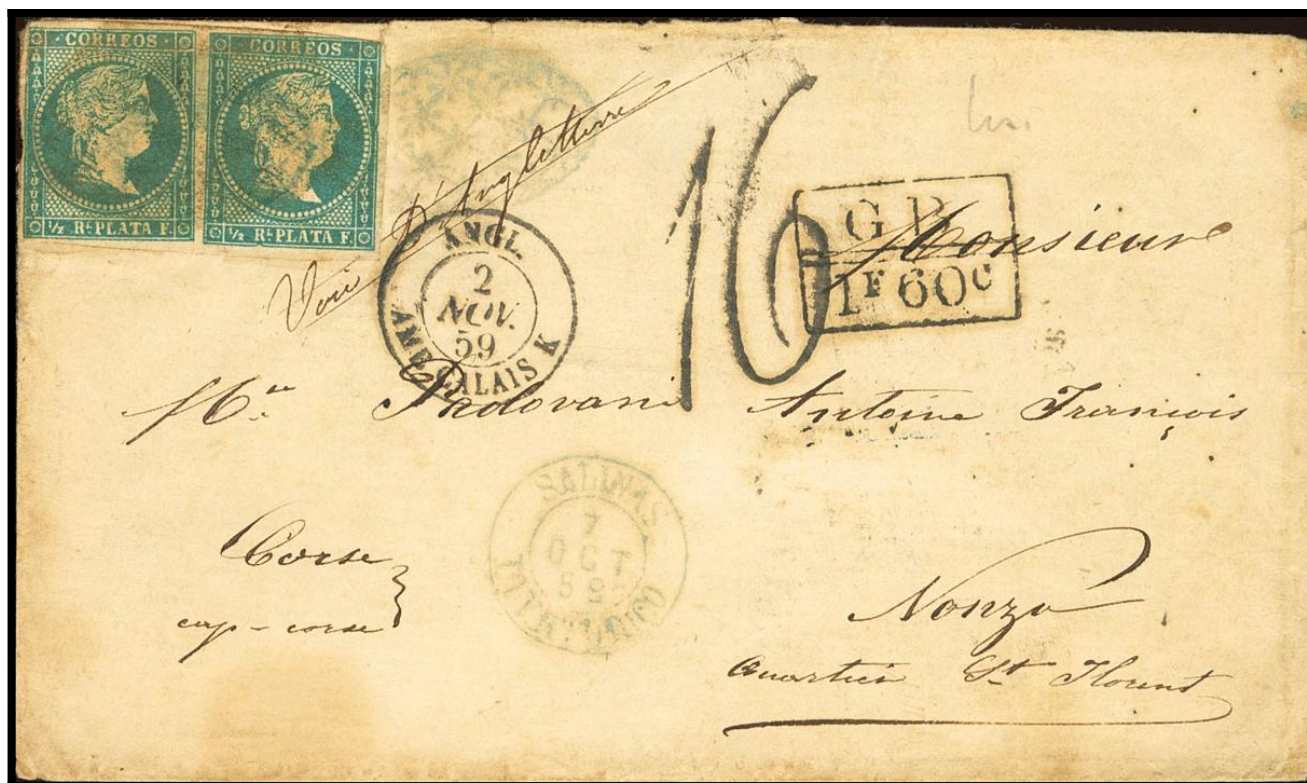 CORREOS
½ Rˡ PLATA F.
CORREOS
½ Rˡ PLATA F.
Voie d'Angleterre
ANGL.
2
NOV.
59
AMB. CALAIS K
16
G B
1F 60C
Monsieur
Padovani Antoine François
SALINAS
7
OCT
59
PUERTO-RICO
Corse
cap-corse
Nonza
Quartier St Florent